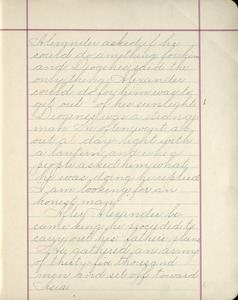 Alexander asked if he
could do anything for him
and Diogenes said the
only thing Alexander
could do for him was to
get out of his sunlight.
Diogenes was a strange
man. He often went ab
out at day light with
a lantern, and when
people asked him what
he was doing he replied
I am looking for an
honest man.
After Alexander be
came king he proceded to
carry out his fathers plans
He gathered an army
of thirty five thousand
men and set off toward